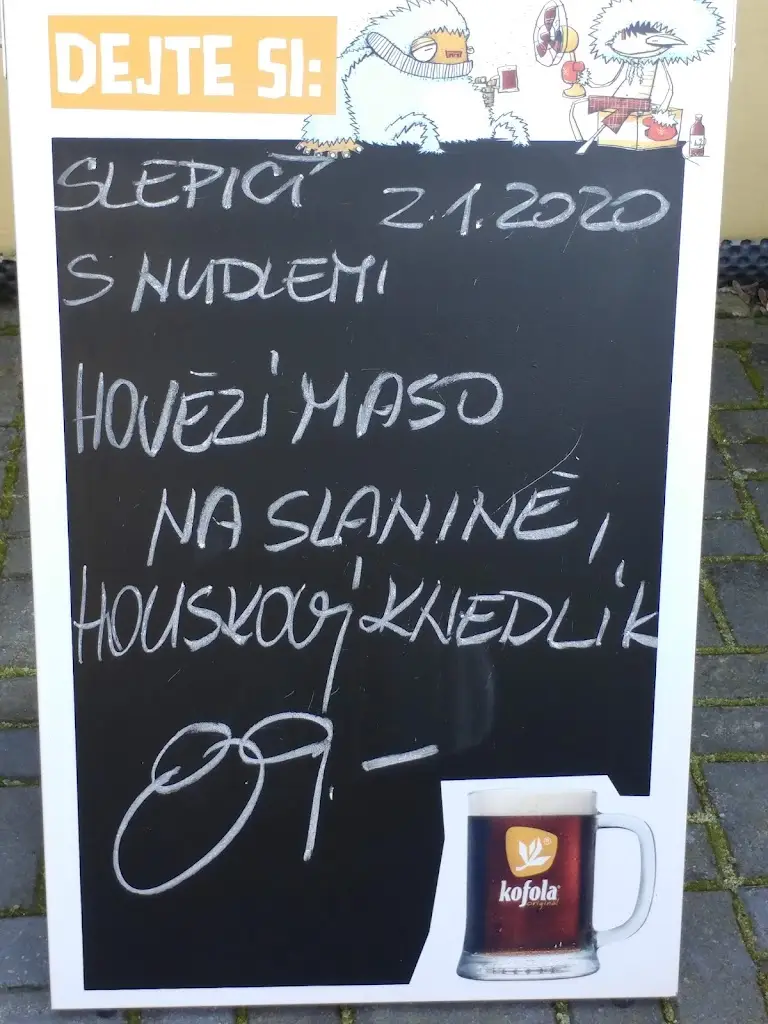 DEJTE SI:
SLEPIČÍ 2.1.2020
S NUDLEMI
HOVĚZÍ MASO
NA SLANINĚ,
HOUSKOVÝ KNEDLÍK
89.–
kofola
original